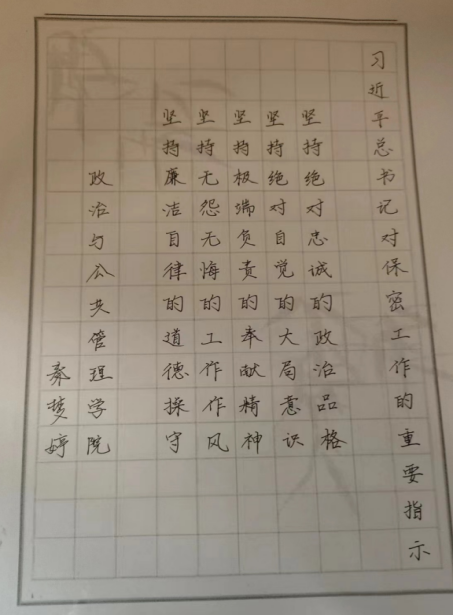 习近平总书记对保密工作的重要指示
坚持绝对忠诚的政治品格
坚持绝对自觉的大局意识
坚持极端负责的奉献精神
坚持无怨无悔的工作作风
坚持廉洁自律的道德操守
政治与公共管理学院
秦梦婷